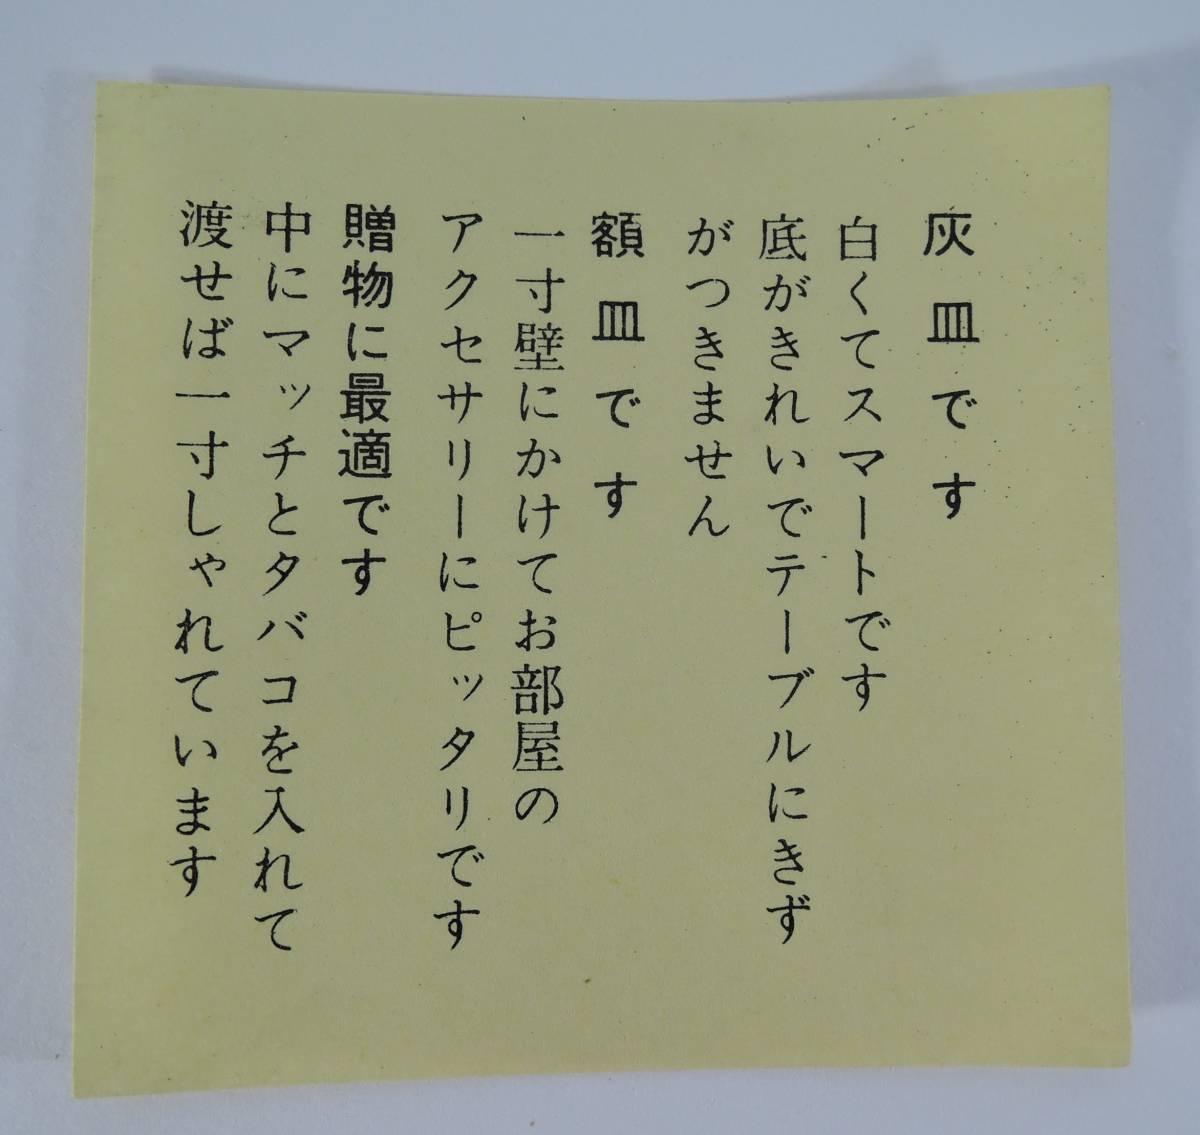 灰皿です
白くてスマートです
底がきれいでテーブルにきず
がつきません
額皿です
一寸壁にかけてお部屋の
アクセサリーにピッタリです
贈物に最適です
中にマッチとタバコを入れて
渡せば一寸しゃれています